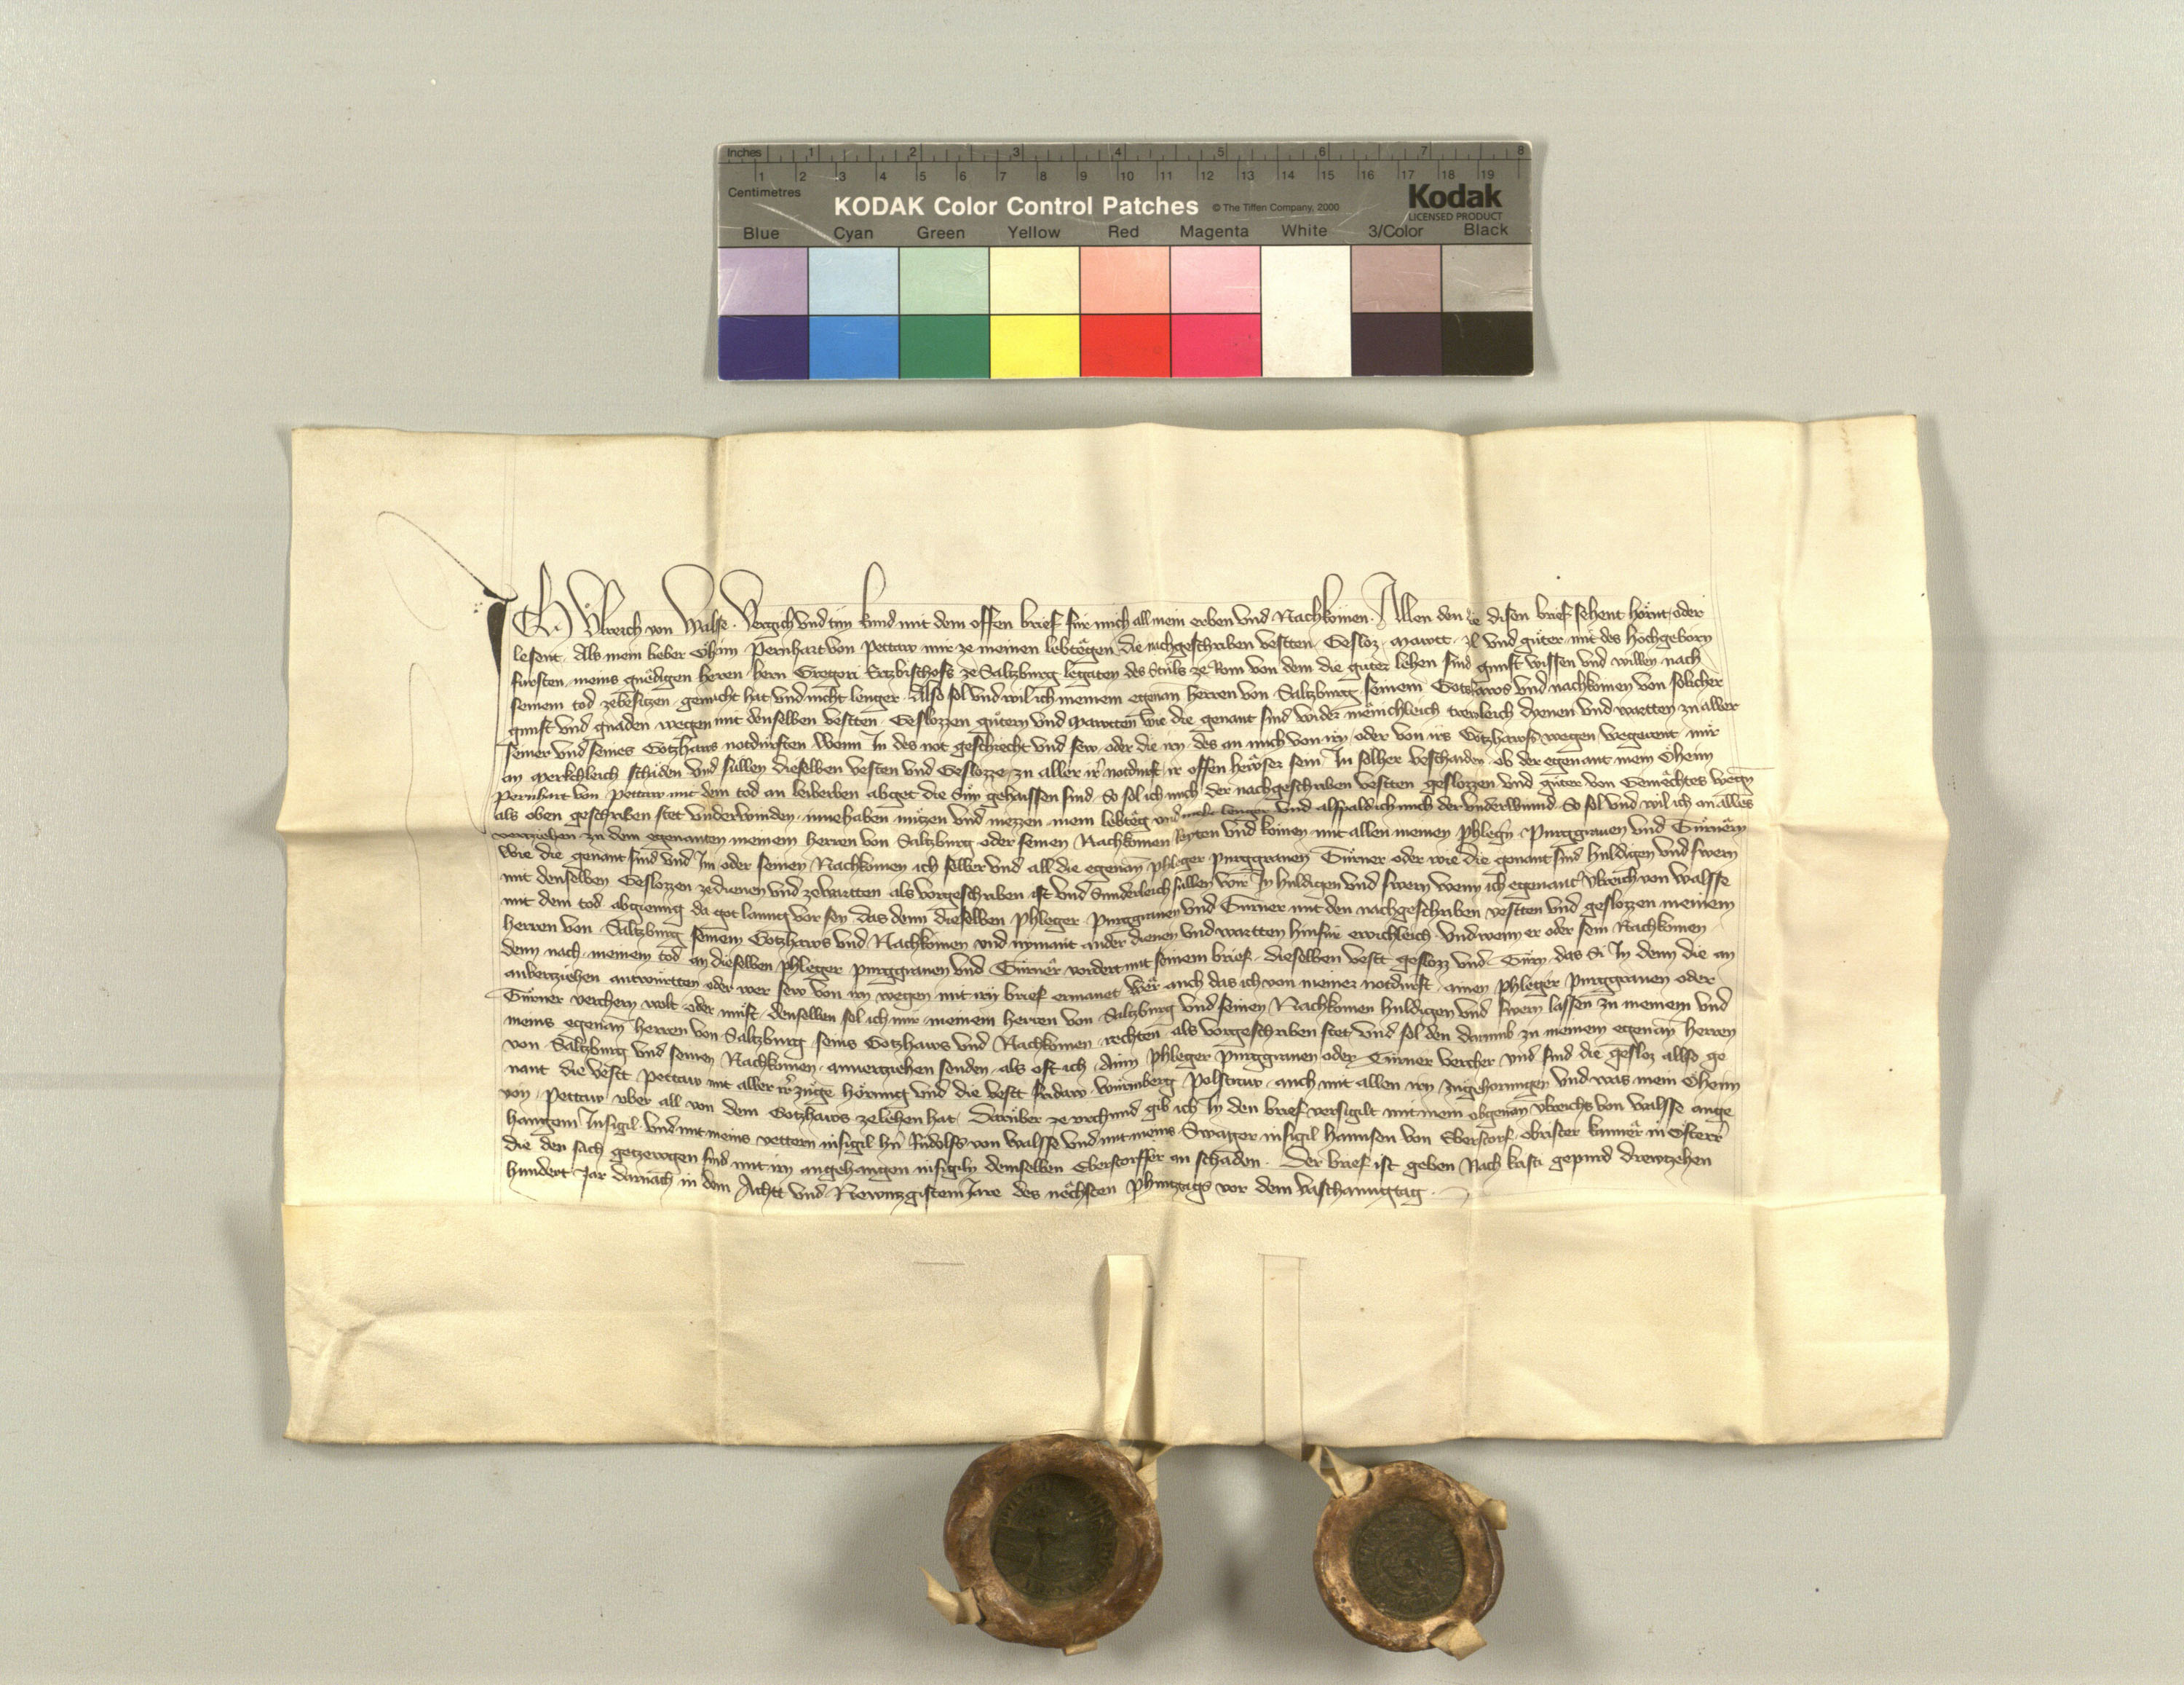 Inches 1 2 3 4 5 6 7 8
Centimetres 1 2 3 4 5 6 7 8 9 10 11 12 13 14 15 16 17 18 19
KODAK Color Control Patches © The Tiffen Company, 2000 Kodak
LICENSED PRODUCT
Blue Cyan Green Yellow Red Magenta White 3/Color Black
Ich Ulreich von Walsse. Vergich und tun kund mit dem offen brief für mich all mein erben und Nachkomen. Allen den die disen brief sehent hörnt oder
lesent. Als mein lieber Öhim Pernhart von Pettaw mir ze meinen lebtegen die nachgeschriben vestten Gesloz Markt und güter mit des Hochgeborn
fürsten meins gnedigen herren hern Gregori Ertzbischofs ze Saltzburg legaten des Stuls ze Rom von dem die güter lehen sind gunst wissen und willen nach
seinem tod zebesitzen gemacht hat und nicht lenger. Also sol und wil ich meinem egenan herren von Saltzburg seinem Gotzhaws und nachkomen von solicher
gunst und gnaden wegen mit denselben vestten Geslozzen gütern und Markten wie die genant sind wider menichleich trewleich dyenen und wartten zu aller
seiner und seines Gotzhaws notdurften Wenn In des not geschiecht und sew oder die irn des an mich von irn oder von irs Gotzhaws wegen begerent mir
an merkchleich schaden und sullen dieselben vesten und Geslozze zu aller ir notdurft ir offen hewser sein In solher beschaiden ob der egenant mein Öheim
Pernhart von Pettaw mit dem tod an leiberben abget die Sün gehaissen sind So sol ich mich der nachgeschriben vestten geslozzen und güter von Gemechtes wegn
als oben geschriben stet underwinden innehaben nützen und niezzen mein lebteg und nicht lenger Und alspald ich mich der underwind So sol und wil ich an alles
verziehen zu dem egenanten meinem herren von Saltzburg oder seinen Nachkomen reyten und komen mit allen meinen phlegern Purggrauen und Türnern
wie die genant sind und Im oder seinen Nachkomen ich selber und all die egenan phleger purggrauen Türner oder wie die genant sind huldigen und swern
mit denselben Geslozzen zedienen und zewartten als vorgeschriben ist und Sunderleich sullen wir In huldigen und swern wenn ich egenant Ulreich von Walsse
mit dem tod abgieng da got lanng vor sey das denn dieselben phleger Purggrauen und Türner mit den nachgeschriben vestten und geslozzen meinem
herren von Saltzburg seinem Gotzhaws und Nachkomen und nymant ander dienen und wartten hinfür ewichleich Und wenn er oder sein Nachkomen
denn nach meinem tod an dieselben phleger purggrauen und Türner vordert mit seinem brief dieselben vestt geslozz und Türn das Si In denn die an
anverziehen antwürtten oder wer sew von irn wegen mit irn brief ermanet Wer auch das ich von meiner notdurft ainen phleger purggrauen oder
Türner verchern wolt oder müst denselben sol ich mir meinem herren von Saltzburg und seinen Nachkomen huldigen und swern lassen zu meinem und
meins egenan herren von Saltzburg seins Gotzhaws und Nachkomen rechten als vorgeschriben stet Und sol den darumb zu meinem egenan herren
von Saltzburg und seinen Nachkomen anverziehen senden als oft ich ainn phleger purggrauen oder Türner vercher Und sind die gesloz allso ge
nant die vestt Pettaw mit aller irer zuge hörung und die vest fridaw Wurmberg Polstraw auch mit allen irn zugehorungen Und was mein Öheim
von Pettaw uber all von dem Gotzhaws ze lehen hat. Darüber ze urchund gib ich In den brief versigilt mit mein obgenan Ulreichs von Walsse ange
hangem Insigil Und mit meins vettern insigil hern Rudolfs von Walsse und mit meins Swager insigil hannsen von Eberstorf obrister kamrer in Österr
die den sach getzewgen sind mit irn angehangen insigiln demselben Eberstorffer an schaden. Der brief ist geben Nach krists gepurd drewtzehen
hundert Jar darnach in dem Achtt und Newnzgistem Jare des nechsten phintztags vor dem vaschanngtag.